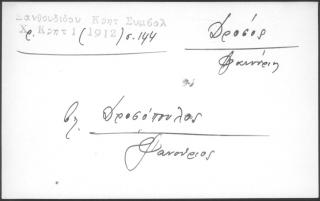 Ξανθουδίδου Κρητ Συμβολ
Χρ. Κρητ 1 (1912) σ. 144
Δροσός
Φανούρης
βλ. Δροσόπουλος
Φανούριος